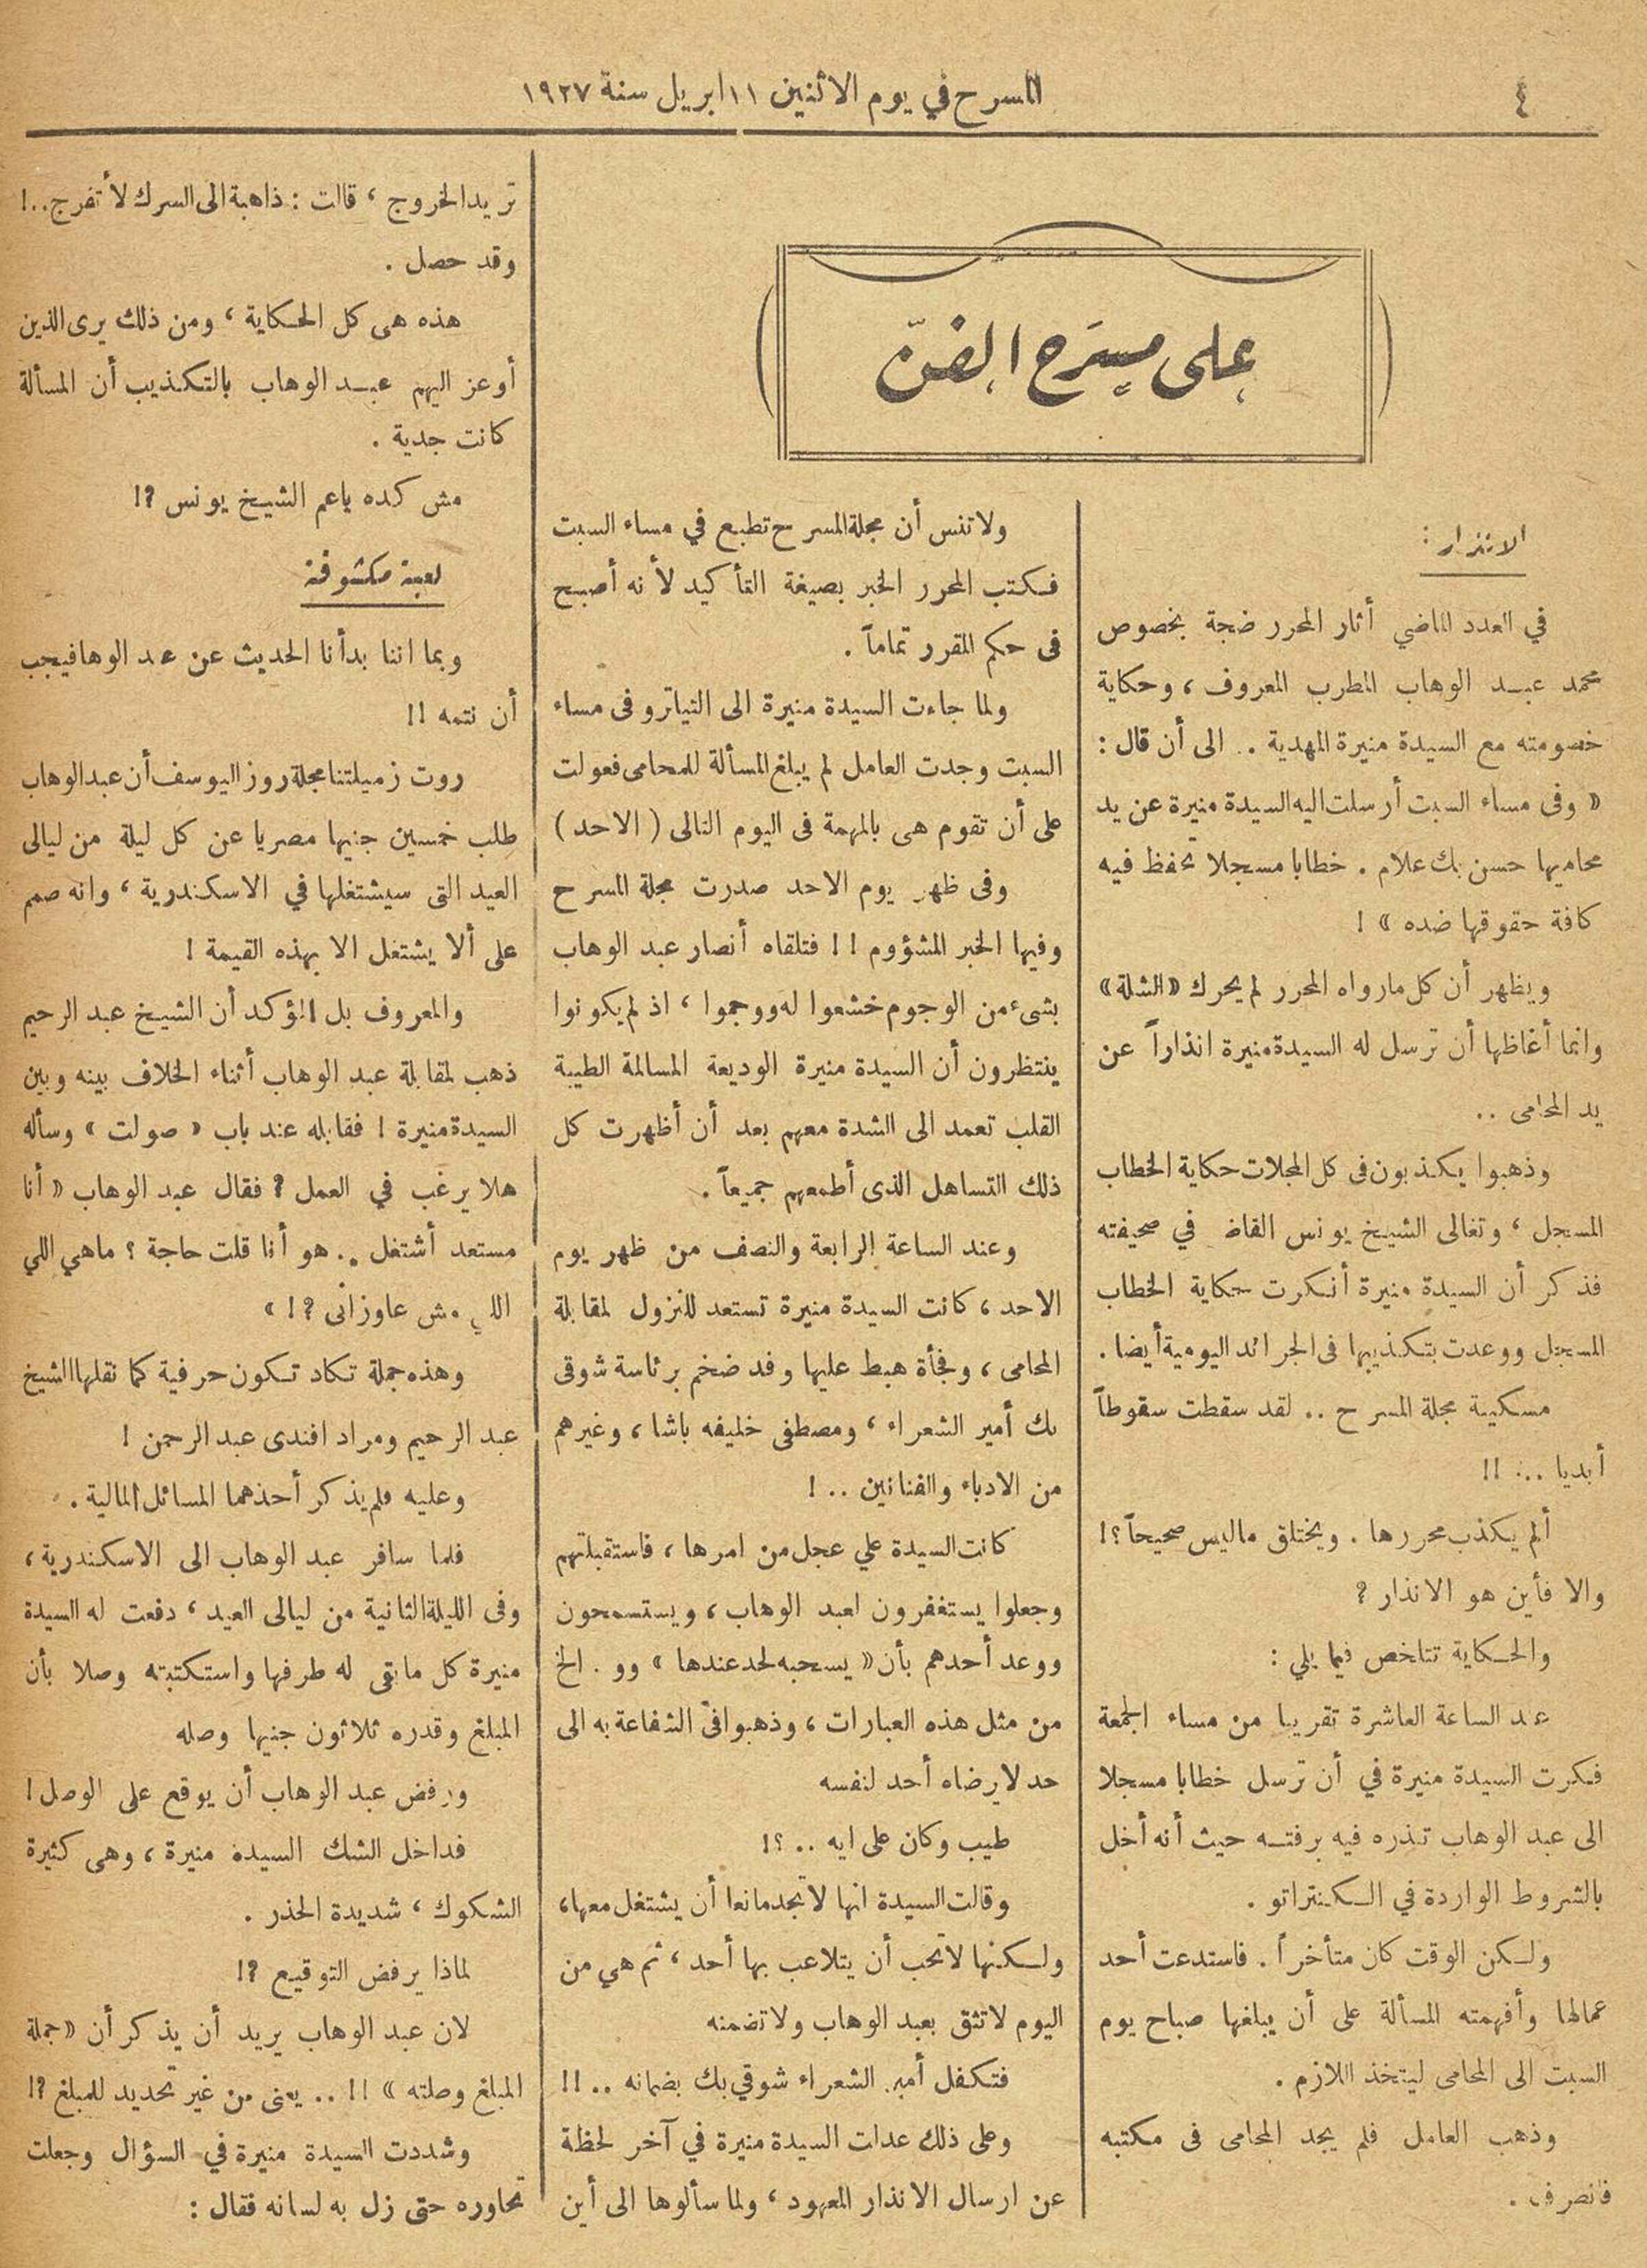 ٤
المسرح في يوم الاثنين ١١ ابريل سنة ١٩٢٧
على مسرح الفن
الانذار :
في العدد الماضي أثار المحرر ضجة بخصوص
محمد عبد الوهاب المطرب المعروف ، وحكاية
خصومته مع السيدة منيرة المهدية .. الى أن قال :
« وفى مساء السبت أرسلت اليه السيدة منيرة عن يد
محاميها حسن بك علام . خطابا مسجلا تحفظ فيه
كافة حقوقها ضده » !
ويظهر أن كل مارواه المحرر لم يحرك «الشلة»
وانما أغاظها أن ترسل له السيدة منيرة انذاراً عن
يد المحامى ..
وذهبوا يكذبون فى كل المجلات حكاية الخطاب
المسجل ، وتغالى الشيخ يونس القاض في صحيفته
فذكر أن السيدة منيرة أنكرت حكاية الخطاب
المسجل ووعدت بتكذيبها فى الجرائد اليومية أيضا .
مسكينة مجلة المسرح .. لقد سقطت سقوطاً
أبديا ... !!
ألم يكذب محررها . ويختلق ماليس صحيحاً ؟!
والا فأين هو الانذار ؟
والحكاية تتلخص فيما يلي :
عند الساعة العاشرة تقريبا من مساء الجمعة
فكرت السيدة منيرة في أن ترسل خطابا مسجلا
الى عبد الوهاب تنذره فيه برفته حيث أنه أخل
بالشروط الواردة في الكنتراتو .
ولكن الوقت كان متأخراً . فاستدعت أحد
عمالها وأفهمته المسألة على أن يبلغها صباح يوم
السبت الى المحامى ليتخذ اللازم .
وذهب العامل فلم يجد المحامى فى مكتبه
فانصرف .
ولا تنس أن مجلة المسرح تطبع في مساء السبت
فكتب المحرر الخبر بصيغة التأكيد لأنه أصبح
فى حكم المقرر تماماً .
ولما جاءت السيدة منيرة الى التياترو فى مساء
السبت وجدت العامل لم يبلغ المسألة للمحامى فعولت
على أن تقوم هى بالمهمة فى اليوم التالى ( الاحد )
وفى ظهر يوم الاحد صدرت مجلة المسرح
وفيها الخبر المشؤوم !! فتلقاه أنصار عبد الوهاب
بشىء من الوجوم خشعوا له ووجموا ، اذ لم يكونوا
ينتظرون أن السيدة منيرة الوديعة المسالمة الطيبة
القلب تعمد الى الشدة معهم بعد أن أظهرت كل
ذلك التساهل الذى أطمعهم جميعاً .
وعند الساعة الرابعة والنصف من ظهر يوم
الاحد ، كانت السيدة منيرة تستعد للنزول لمقابلة
المحامى ، وفجأة هبط عليها وفد ضخم برئاسة شوقى
بك أمير الشعراء ، ومصطفى خليفه باشا ، وغيرهم
من الادباء والفنانين .. !
كانت السيدة علي عجل من امرها ، فاستقبلتهم
وجعلوا يستغفرون لعبد الوهاب ، ويستسمحون
ووعد أحدهم بأن « يسحبه لحد عندها » وو . الخ
من مثل هذه العبارات ، وذهبوا في الشفاعة به الى
حد لا يرضاه أحد لنفسه
طيب وكان على ايه .. ؟!
وقالت السيدة انها لاتجد مانعا أن يشتغل معها ،
ولكنها لاتحب أن يتلاعب بها أحد ، ثم هي من
اليوم لاتثق بعبد الوهاب ولا تضمنه
فتكفل أمير الشعراء شوقي بك بضمانه .. !!
وعلى ذلك عدلت السيدة منيرة في آخر لحظة
عن ارسال الانذار المعهود ، ولما سألوها الى أين
تريد الخروج ، قالت : ذاهبة الى السرك لأتفرج ..!
وقد حصل .
هذه هى كل الحكاية ، ومن ذلك يرى الذين
أوعز اليهم عبد الوهاب بالتكذيب أن المسألة
كانت جدية .
مش كده ياعم الشيخ يونس ؟!
لعبة مكشوفة
وبما اننا بدأنا الحديث عن عبد الوها فيجب
أن نتمه !!
روت زميلتنا مجلة روز اليوسف أن عبد الوهاب
طلب خمسين جنيها مصريا عن كل ليلة من ليالى
العيد التى سيشتغلها في الاسكندرية ، وانه صمم
على ألا يشتغل الا بهذه القيمة !
والمعروف بل المؤكد أن الشيخ عبد الرحيم
ذهب لمقابلة عبد الوهاب أثناء الخلاف بينه وبين
السيدة منيرة ! فقابله عند باب « صولت » وسأله
هلا يرغب في العمل ؟ فقال عبد الوهاب « أنا
مستعد أشتغل .. هو أنا قلت حاجة ؟ ماهي اللي
اللي مش عاوزانى ؟! »
وهذه جملة تكاد تكون حرفية كما نقلها الشيخ
عبد الرحيم ومراد افندى عبد الرحمن !
وعليه فلم يذكر أحدهما المسائل المالية .
فلما سافر عبد الوهاب الى الاسكندرية ،
وفى الليلة الثانية من ليالى العيد ، دفعت له السيدة
منيرة كل مابقى له طرفها واستكتبته وصلا بأن
المبلغ وقدره ثلاثون جنيها وصله
ورفض عبد الوهاب أن يوقع على الوصل !
فداخل الشك السيدة منيرة ، وهى كثيرة
الشكوك ، شديدة الحذر .
لماذا يرفض التوقيع ؟!
لان عبد الوهاب يريد أن يذكر أن « جملة
المبلغ وصلته » !! .. يعنى من غير تحديد للمبلغ ؟!
وشددت السيدة منيرة في السؤال وجعلت
تحاوره حتى زل به لسانه فقال :